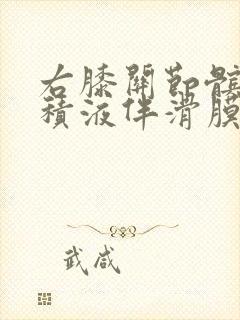 右膝關節髕
積液伴滑膜
武咸